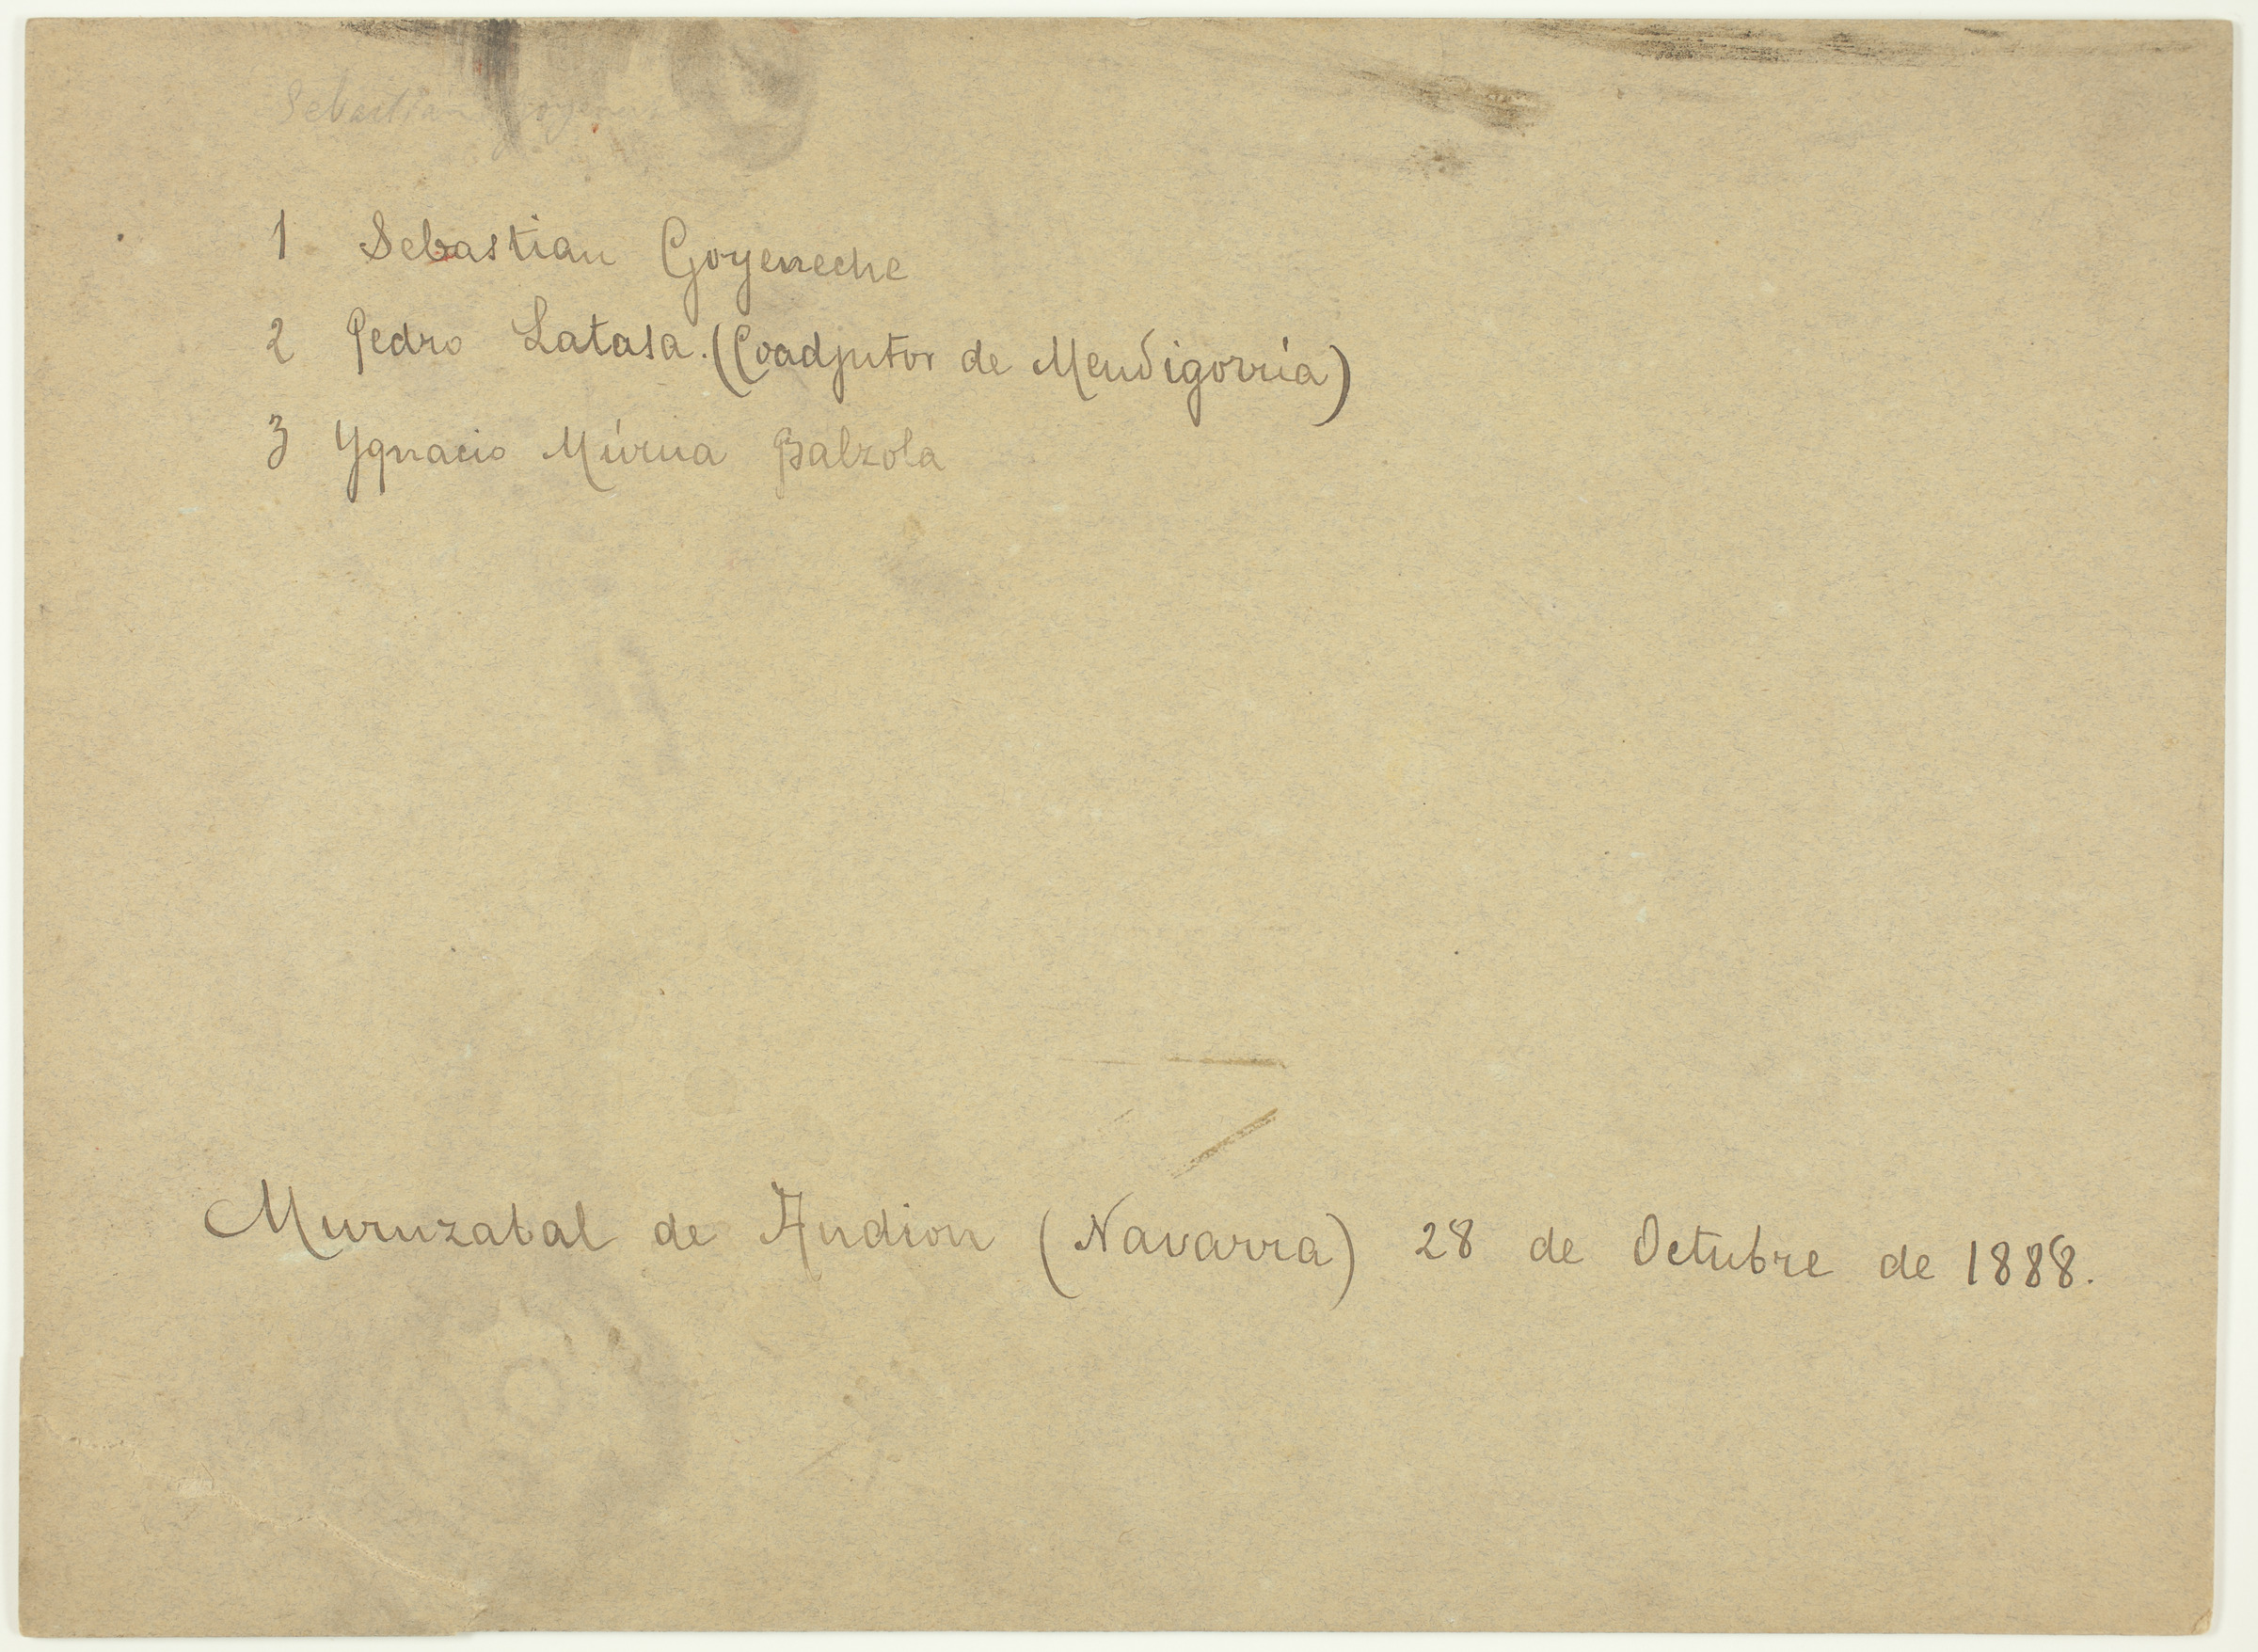 Sebastian
1 Sebastian Goyeneche
2 Pedro Latasa. (Coadjutor de Mendigorría)
3 Ygnacio Múrua Balzola
Muruzabal de Andion (Navarra) 28 de Octubre de 1888.